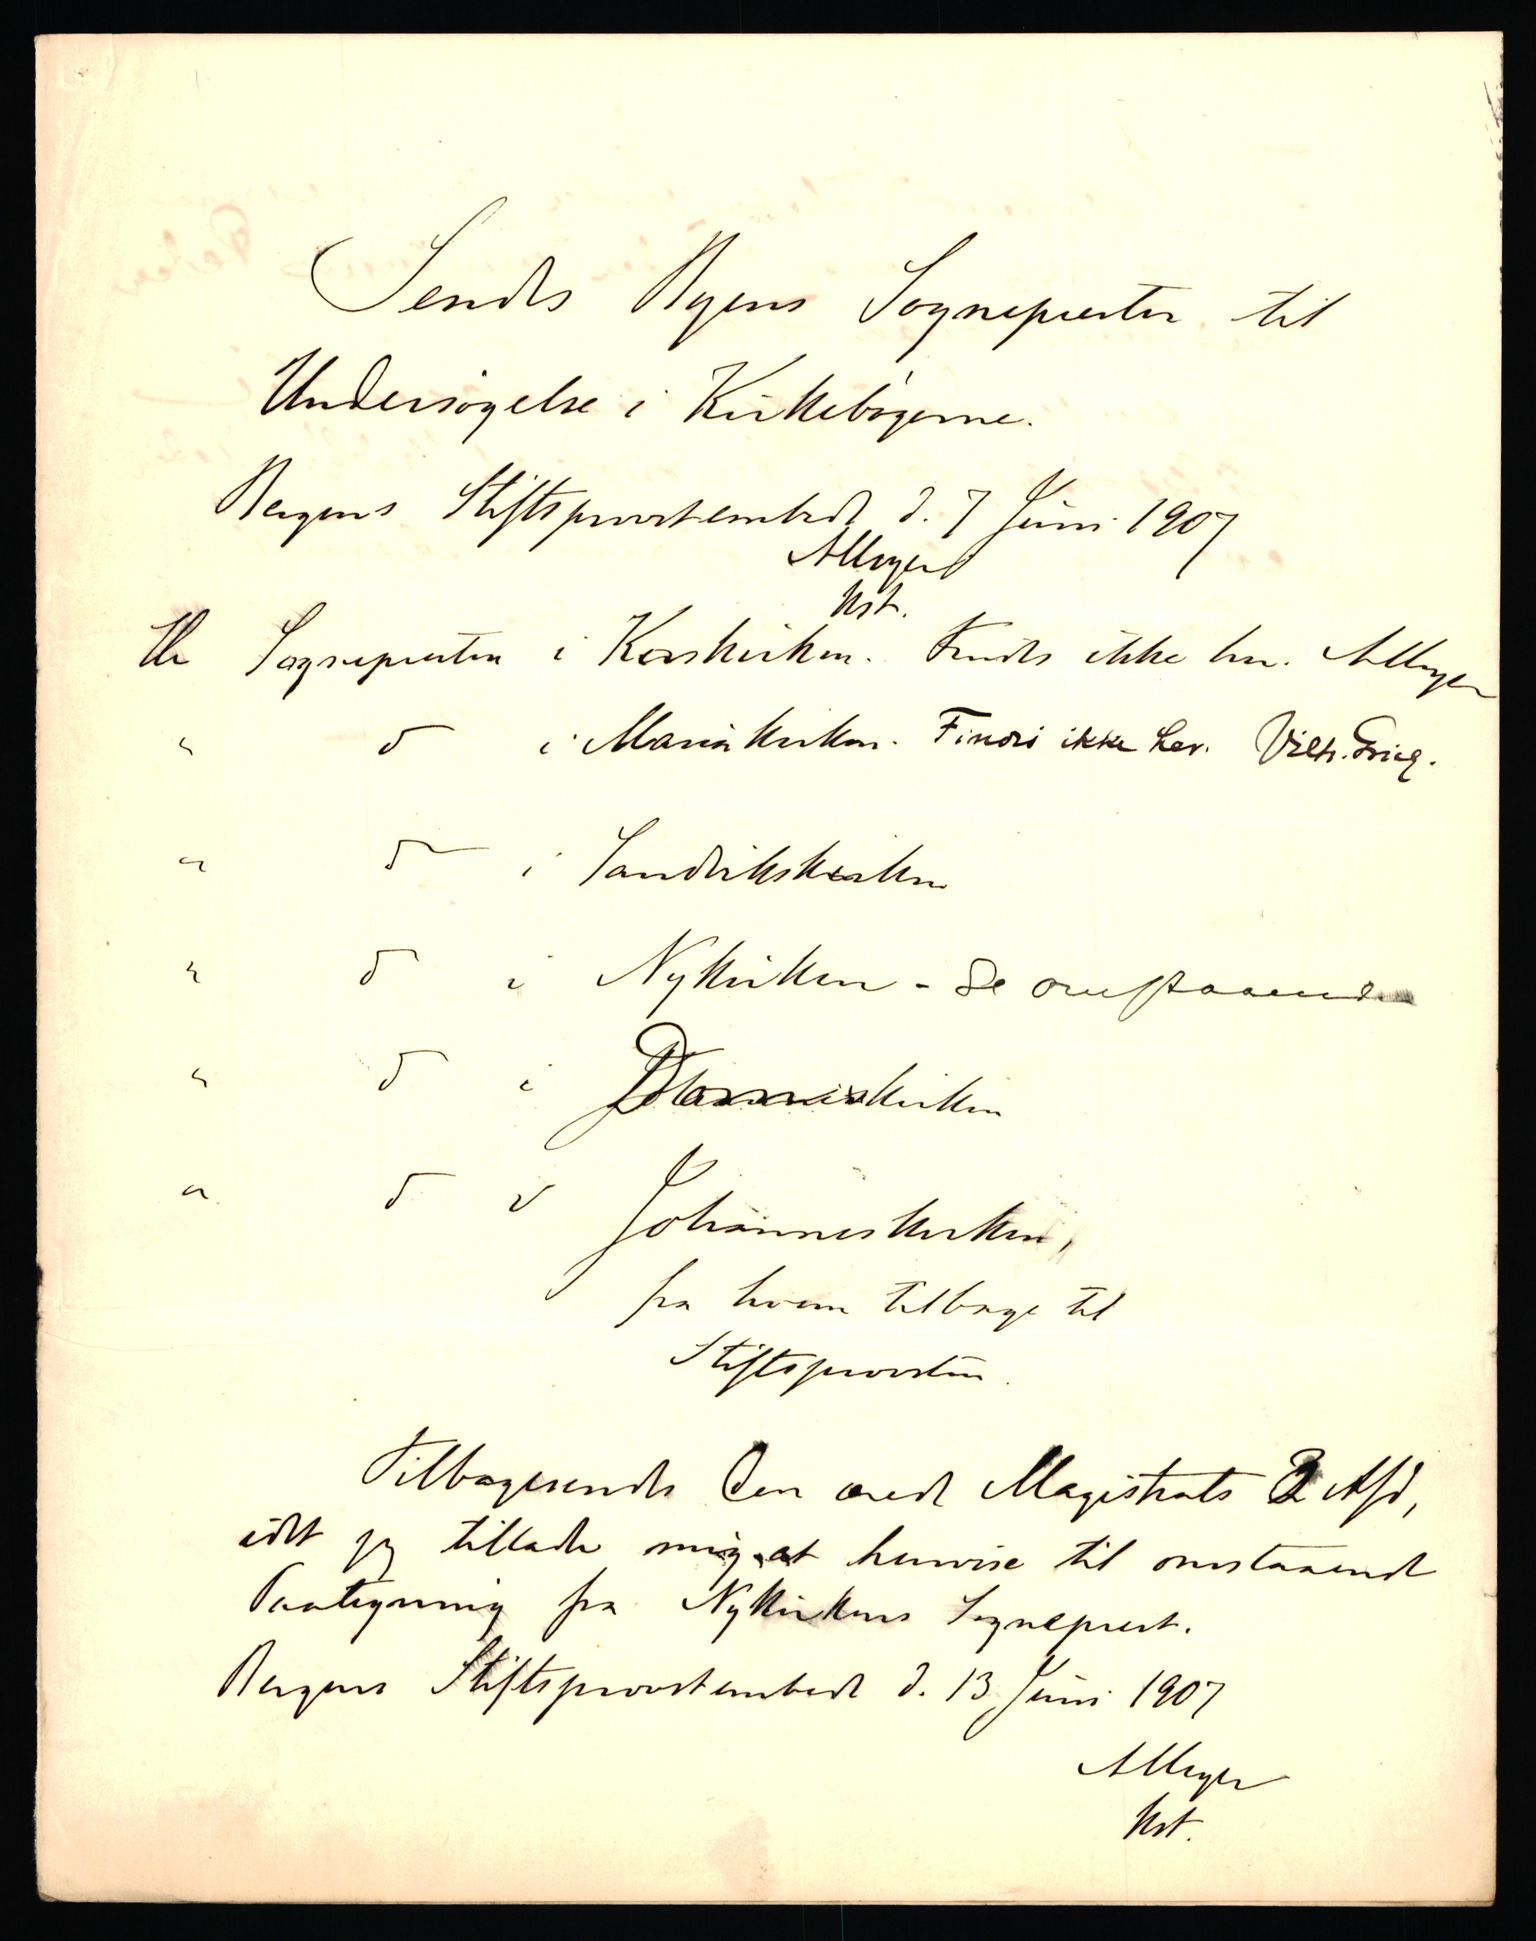 Sendes Byens Sognepræster til
Undersøgelse i Kirkebøgerne.
Bergens Stiftsprovstembede d. 7 Juni 1907
AMeyer
Kst.
Hr Sognepræsten i Korskirken. Findes ikke her. AMeyer
" d i Mariakirken. Findes ikke her. Vilh. Krieg.
" d i Sandvikskirken
" d i Nykirken - Se omstaaende
" d i Domkirken
" d i Johanneskirken,
fra hvem tilbage til
Stiftsprovsten.
Tilbagesendes den ærede Magistrats 2 Afd,
idet jeg tillader mig at henvise til omstaaende
Paategning fra Nykirkens Sognepræst.
Bergens Stiftsprovstembede d. 13 Juni 1907
AMeyer
Kst.